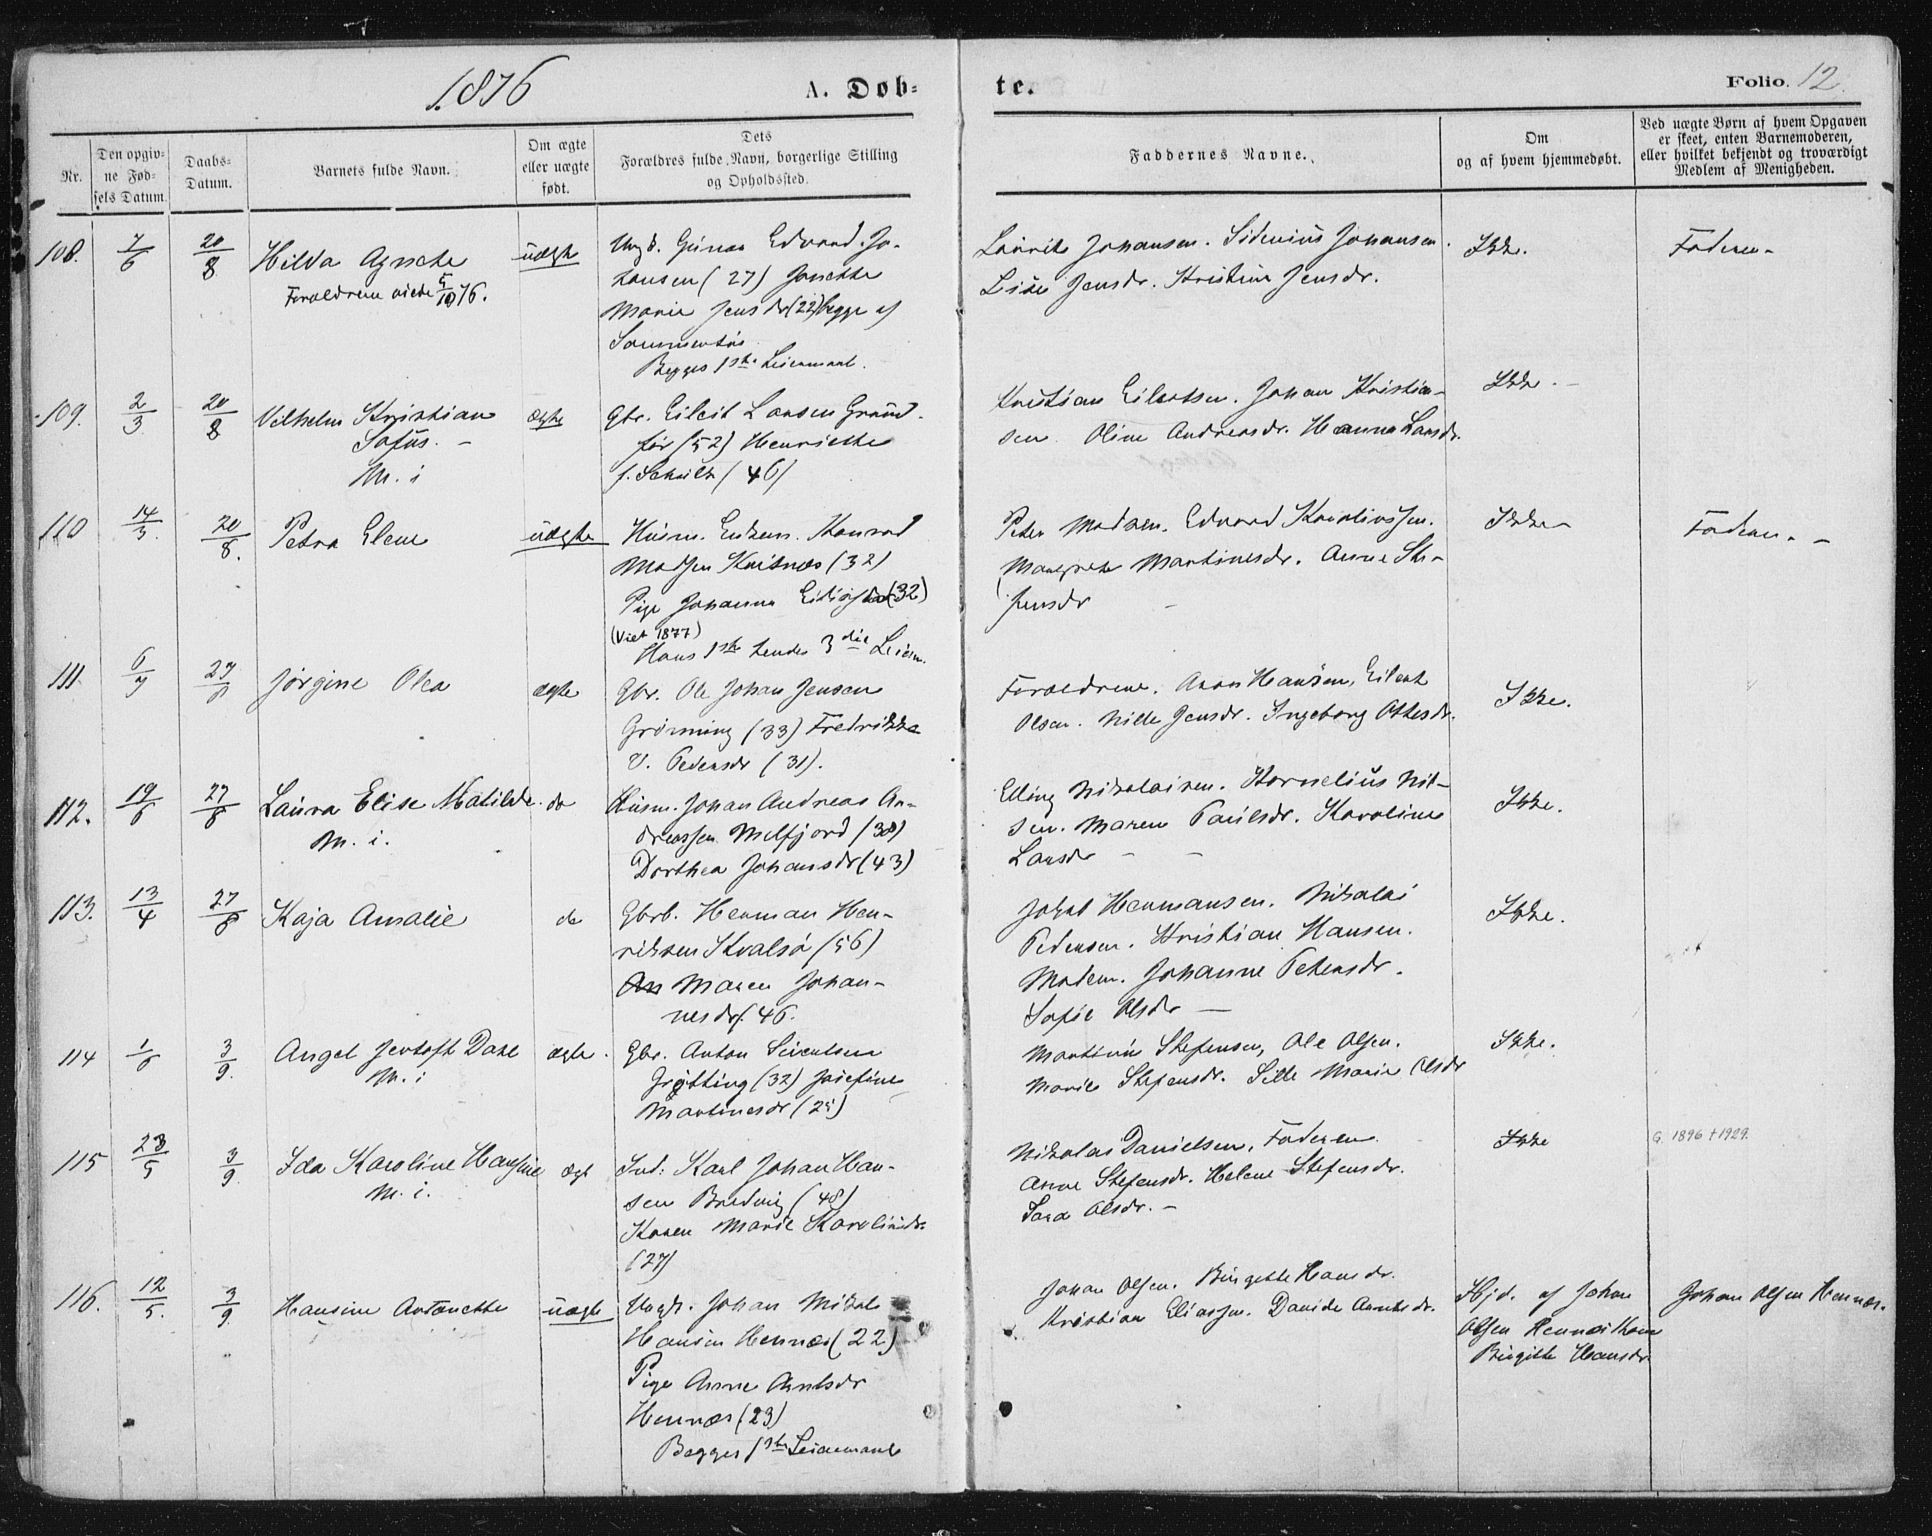 1876
A. Døb-
te.
Folio. 12.
Nr.
Den opgiv-
ne Fød-
sels Datum.
Daabs-
Datum.
Barnets fulde Navn.
Om ægte
eller uægte
født.
Dets
Forældres fulde Navn, borgerlige Stilling
og Opholdssted.
Faddernes Navne.
Om
og af hvem hjemmedøbt.
Ved uægte Børn af hvem Opgaven
er skeet, enten Barnemoderen,
eller hvilket bekjendt og troværdigt
Medlem af Menigheden.
108. 7/6 20/8 Hilda Agnete
Forældrene viede 5/10 76.
uægte
Ungk. Edvard Jo-
hansen (27) Jonette
Marie Jensdr (22) begge af
Begges 1ste Leiermaal.
Laurits Johansen. Sidenius Johansen.
Lise Jensdr. Kristine Jensdr.
Ikke.
Faderen-
109. 2/3 20/8 Vilhelm Kristian
Sofus. -
M. i
ægte
Gbr. Eilert Larsen Grund-
før (52) Henriette
f. Schult (46)
Kristian Eilertsen. Johan Kristian-
sen. Oline Andreasdr. Hanna Larsdr.
Ikke. -
110 14/3. 20/8. Petra Elene
uægte
Husm. Enkem. Konrad
Madsen Kvitnæs (32)
Pige Johanna (32)
(Viet 1877)
Hans 1ste hendes 3die Leierm.
Peter Madsen. Edvard
Margrete Martinesdr. Anne Ste-
fensdr -
Ikke -
Faderen. -
111. 6/7 27/8 Jørgine Olea
ægte
Gbr. Ole Johan Jensen
Grønning (33) Fredrikke
V. Pedersdr (31).
Forældrene. Aron Hansen, Eilert
Olsen. Nille Jensdr. Ingeborg Ottesdr.
Ikke.
112. 19/6 27/8 Laura Elise Matilde.
M. i.
do
Husm. Johan Andreas An-
dreassen Melfjord (38)
Dorthea Johansdr (43)
Elling Nikolaisen. Kornelius Nil-
sen. Maren Paulsdr. Karoline
Larsdr - -
Ikke.
113. 13/4 27/8 Kaja Amalie
do
Gbrb. Herman Hen-
riksen Kvalsø (56)
An Maren Johan-
nesdr. (46.
Johan Hermansen. Nikolai
Pedersen. Kristian Hansen.
Moderen. Johanne Petersdr.
Sofie Olsdr -
Ikke.
114 1/6 3/9. Angel Jentoft Dahl
M. i
ægte.
Gbr. Anton Sivertsen
Grøtting (32) Josefine
Martinesdr (25)
Martin Stefensen, Ole Olsen.
Marie Stefensdr. Sille Marie Olsdr
Ikke.
115 23/5 3/9. Ida Karoline Hansine
M. i.
ægt
Ind. Karl Johan Han-
sen Bredvig (48)
Karen Marie Karolinsdr.
(27)
Nikolai Danielsen, Faderen.
Anne Stefensdr. Helene Stefensdr.
Sara Olsdr. -
Ikke
G. 1896 † 1929.
116. 12/5. 3/9 Hansine Antonette
uægte
Ungk. Johan Nikolai
Hansen Hennæs (22)
Pige Anne Arntsdr
Hennæs (23)
Begges 1ste Leiermaal
Johan Olsen. Birgitte Hansdr.
Kristian Eliassen. Davida Arntsdr.
Hjd. af Johan
Olsen Hennæs Kone
Birgitte Hansdr
Johan Olsen Hennæs.